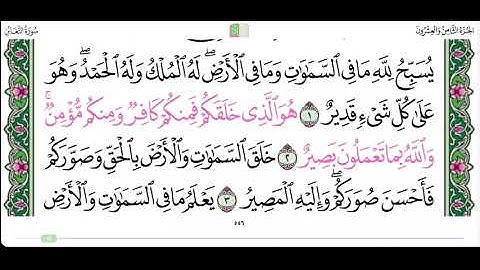 سُورَةُ التَّغَابُنِ
الجُزْءُ الثَّامِنُ وَالعِشْرُونَ
يُسَبِّحُ لِلَّهِ مَا فِي السَّمَٰوَٰتِ وَمَا فِي الْأَرْضِ ۖ لَهُ الْمُلْكُ وَلَهُ الْحَمْدُ ۖ وَهُوَ
عَلَىٰ كُلِّ شَيْءٍ قَدِيرٌ ١ هُوَ الَّذِي خَلَقَكُمْ فَمِنكُمْ كَافِرٌ وَمِنكُم مُّؤْمِنٌ ۚ
وَاللَّهُ بِمَا تَعْمَلُونَ بَصِيرٌ ٢ خَلَقَ السَّمَٰوَٰتِ وَالْأَرْضَ بِالْحَقِّ وَصَوَّرَكُمْ
فَأَحْسَنَ صُوَرَكُمْ ۖ وَإِلَيْهِ الْمَصِيرُ ٣ يَعْلَمُ مَا فِي السَّمَٰوَٰتِ وَالْأَرْضِ
٥٥٦